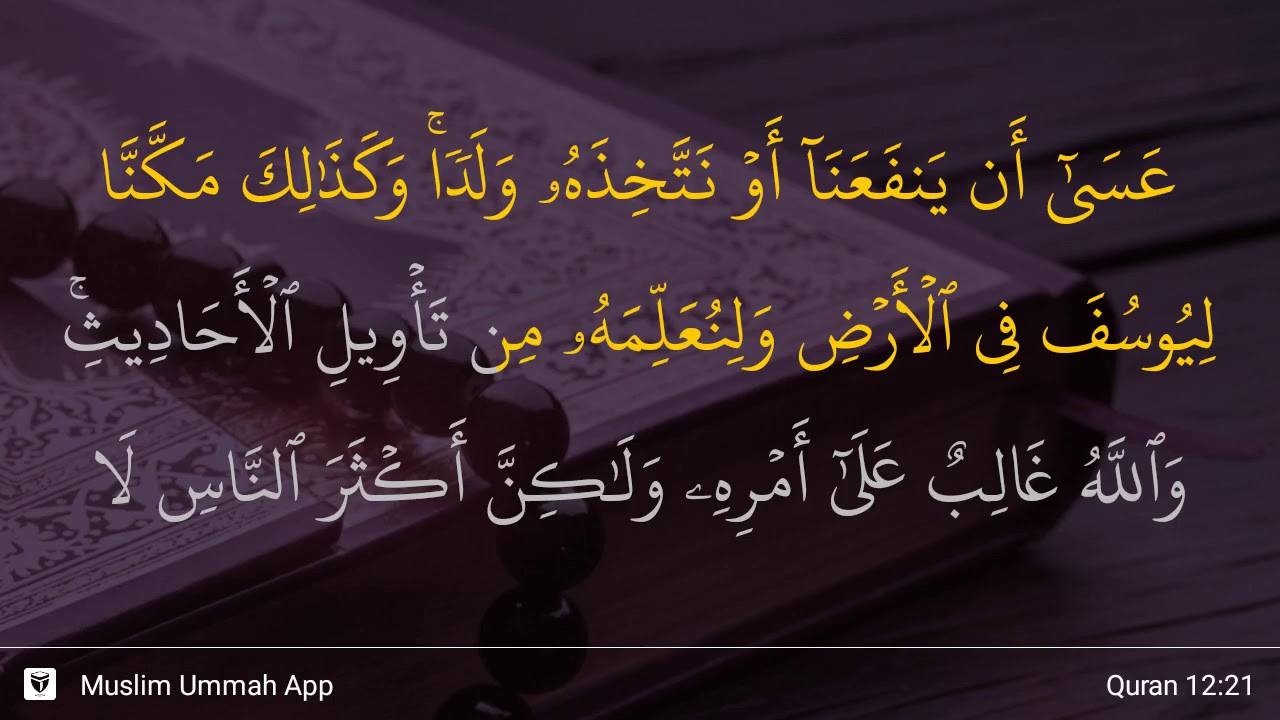 عَسَىٰٓ أَن يَنفَعَنَآ أَوْ نَتَّخِذَهُۥ وَلَدًۭا ۚ وَكَذَٰلِكَ مَكَّنَّا
لِيُوسُفَ فِى ٱلْأَرْضِ وَلِنُعَلِّمَهُۥ مِن تَأْوِيلِ ٱلْأَحَادِيثِ ۚ
وَٱللَّهُ غَالِبٌ عَلَىٰٓ أَمْرِهِۦ وَلَـٰكِنَّ أَكْثَرَ ٱلنَّاسِ لَا
Muslim Ummah App
Quran 12:21